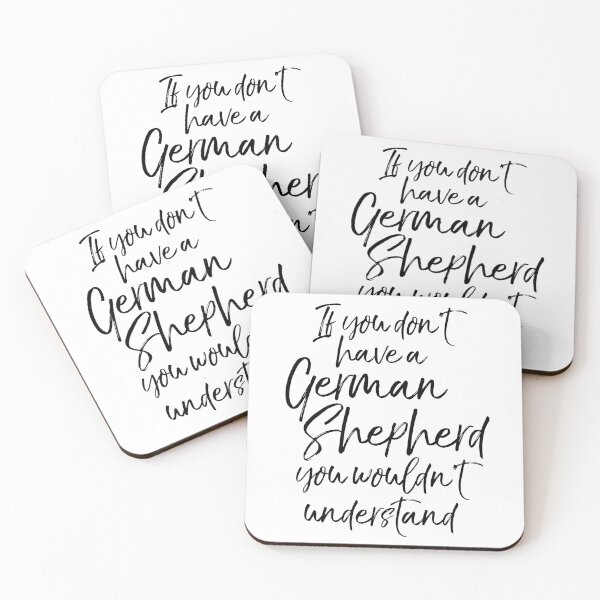 If you don't
have a
German
Shepherd
If you don't
have a
German
Shepherd
you wouldn't
If you don't
have a
German
Shepherd
you would
underst
If you don't
have a
German
Shepherd
you wouldn't
understand